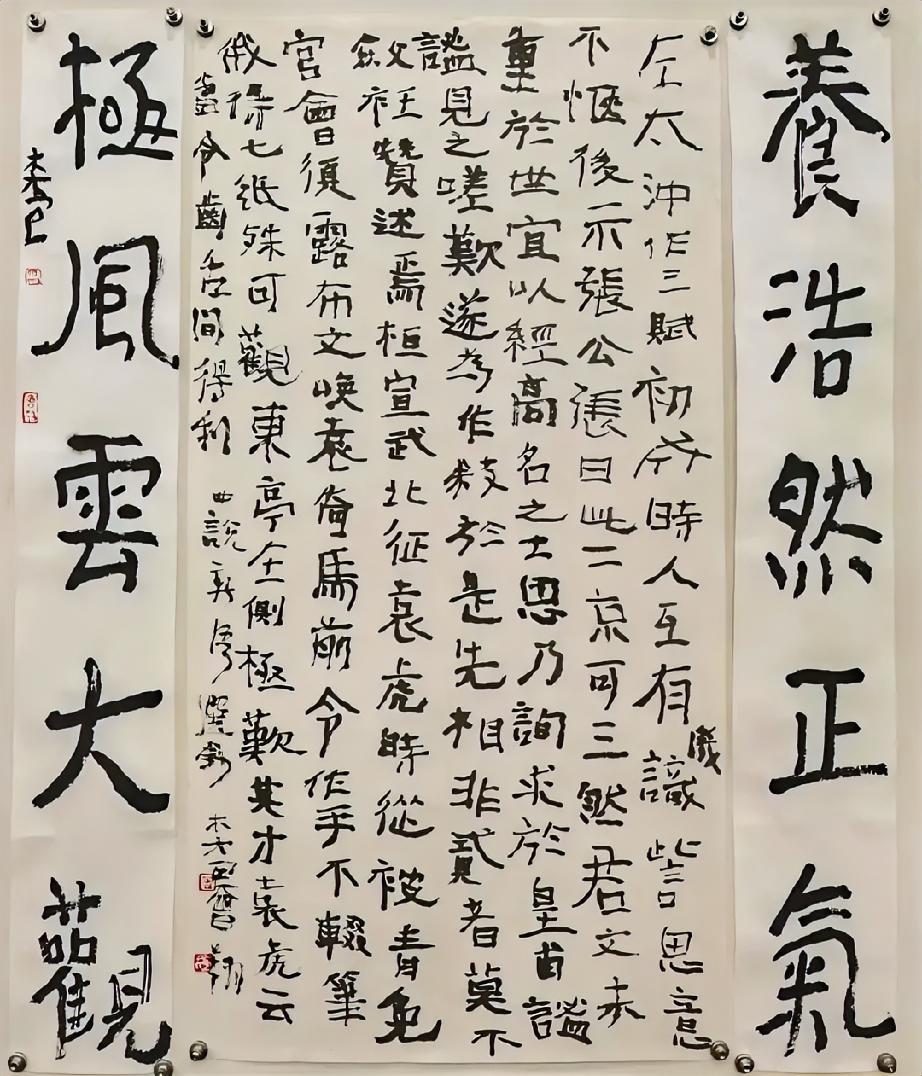 養浩然正氣
左太沖作三賦初成時人互有譏識訾思意
不愜後示張公張曰此二京可三然君文未
重於世宜以經高名之士思乃詢求於皇甫謐
謐見之嗟歎遂為作敘於是先相非貳者莫不
斂衽贊述焉桓宣武北征袁虎時從被責免
官會須露布文喚袁倚馬前令作手不輟筆
俄得七紙殊可觀東亭在側極歎其才袁虎云
當令齒舌間得利 世說新語選鈔
極風雲大觀